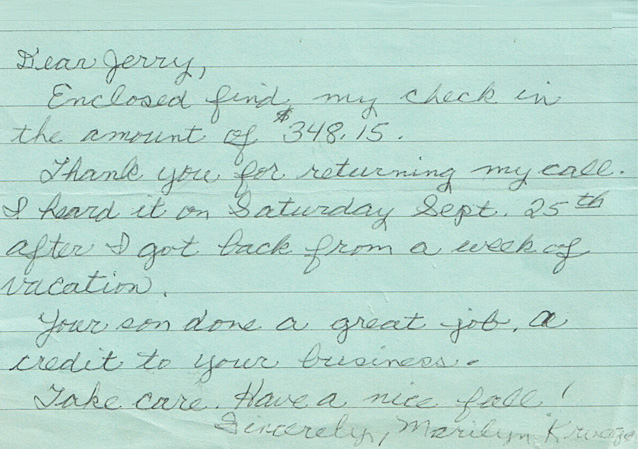 Dear Jerry,
Enclosed find my check in
the amount of $348.15.
Thank you for returning my call.
I heard it on Saturday Sept. 25th
after I got back from a week of
vacation.
Your son done a great job, a
credit to your business.
Take care. Have a nice fall!
Sincerely, Marilyn